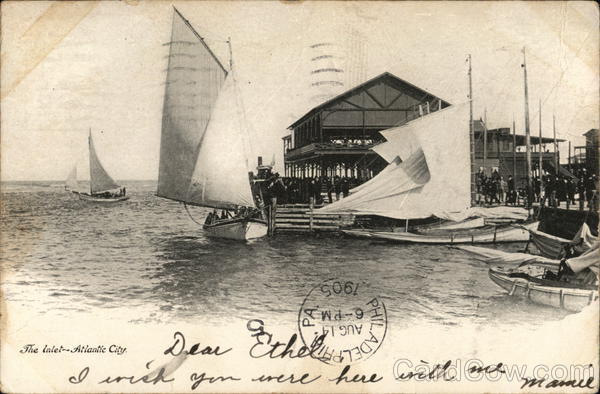 The Inlet--Atlantic City.
PHILADELPHIA PA.
AUG 14
6-PM
1905
Dear Ethel
I wish you were here with me Mamie
CardCow.com